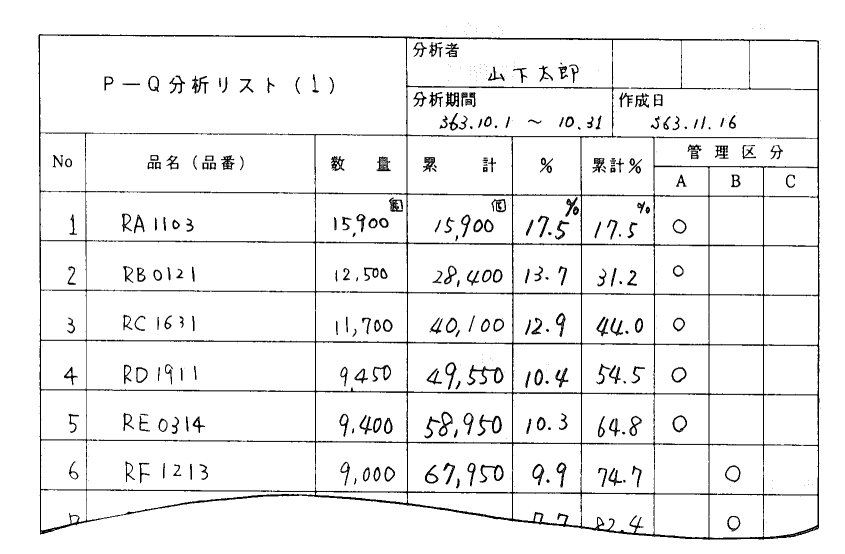 P－Q分析リスト（1）
分析者
山下太郎
分析期間
S63.10.1 ～ 10.31
作成日
S63.11.16
No 品名（品番） 数量 累計 % 累計% 管理区分
A B C
1 RA1103 15,900個 15,900個 17.5% 17.5% ○
2 RB0121 12,500 28,400 13.7 31.2 ○
3 RC1631 11,700 40,100 12.9 44.0 ○
4 RD1911 9,450 49,550 10.4 54.5 ○
5 RE0314 9,400 58,950 10.3 64.8 ○
6 RF1213 9,000 67,950 9.9 74.7 ○
7 7.7 82.4 ○